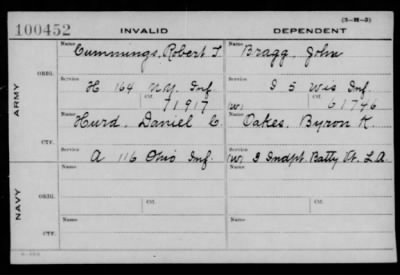 (3-M-3)
100452 INVALID DEPENDENT
Name Cummings, Robert T Name Bragg John
ARMY
ORIG. Service H 164 N.Y. Inf Service I 5 Wis Inf
Ctf. 71917 W. Ctf. 61746
CTF. Name Hurd, Daniel C. Name Oakes, Byron K
Service A 116 Ohio Inf. Service W. 3 Indpt. Batty Vt. L.A.
NAVY
ORIG. Name Ctf. Name Ctf.
Service Service
CTF. Name Name